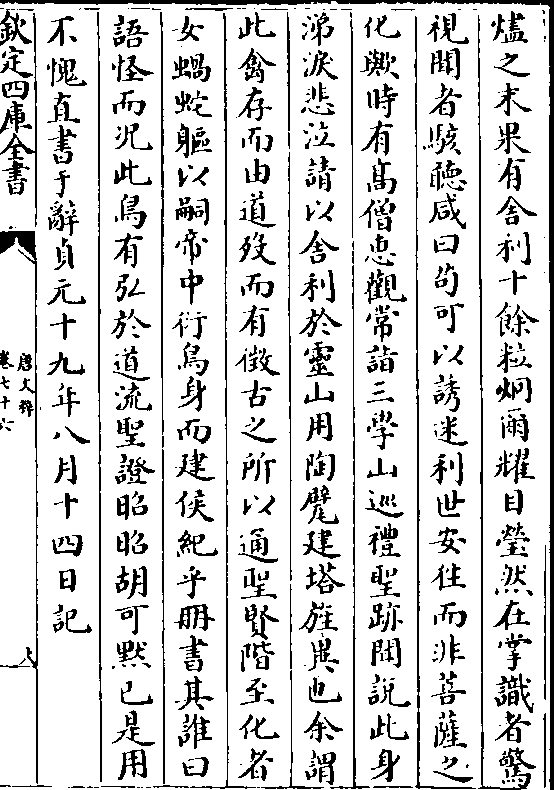 燼之末果有舍利十餘粒炯爾耀目瑩然在掌識者驚
視聞者駭聽咸曰苟可以誘迷利世安往而非菩薩之
化歟時有髙僧惠觀常詣三學山巡禮聖跡聞說此身
涕淚悲泣請以舍利於靈山用陶甓建塔旌異也余謂
此禽存而由道歿而有徵古之所以通聖賢階至化者
女蝸蛇軀以嗣帝中衍鳥身而建侯紀乎冊書其誰曰
語怪而況此鳥有弘於道流聖證昭昭胡可黙已是用
不愧直書于辭貞元十九年八月十四日記
欽定四庫全書
唐文粹
卷七十六